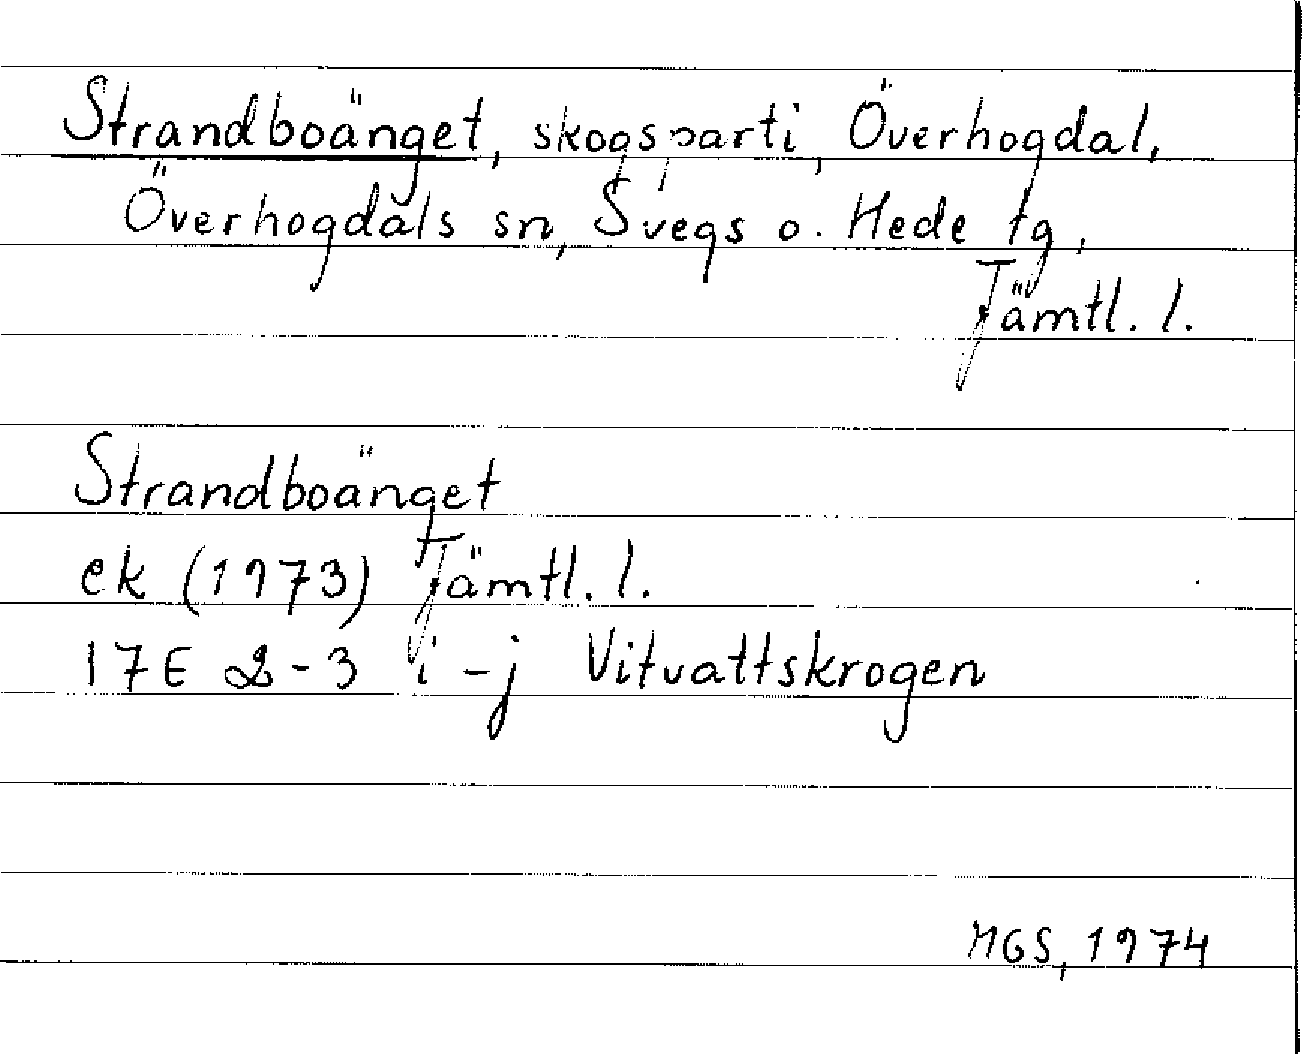 Strandboänget, skogsparti, Överhogdal,
Överhogdals sn, Svegs o. Hede tg,
Jämtl. l.
Strandboänget
ek (1973) Jämtl. l.
17E 2-3 i-j Vitvattskrogen
MGS, 1974